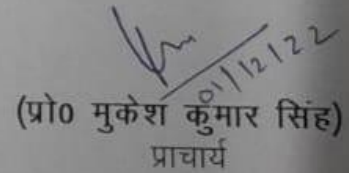 01/12/22
(प्रो0 मुकेश कुमार सिंह)
प्राचार्य